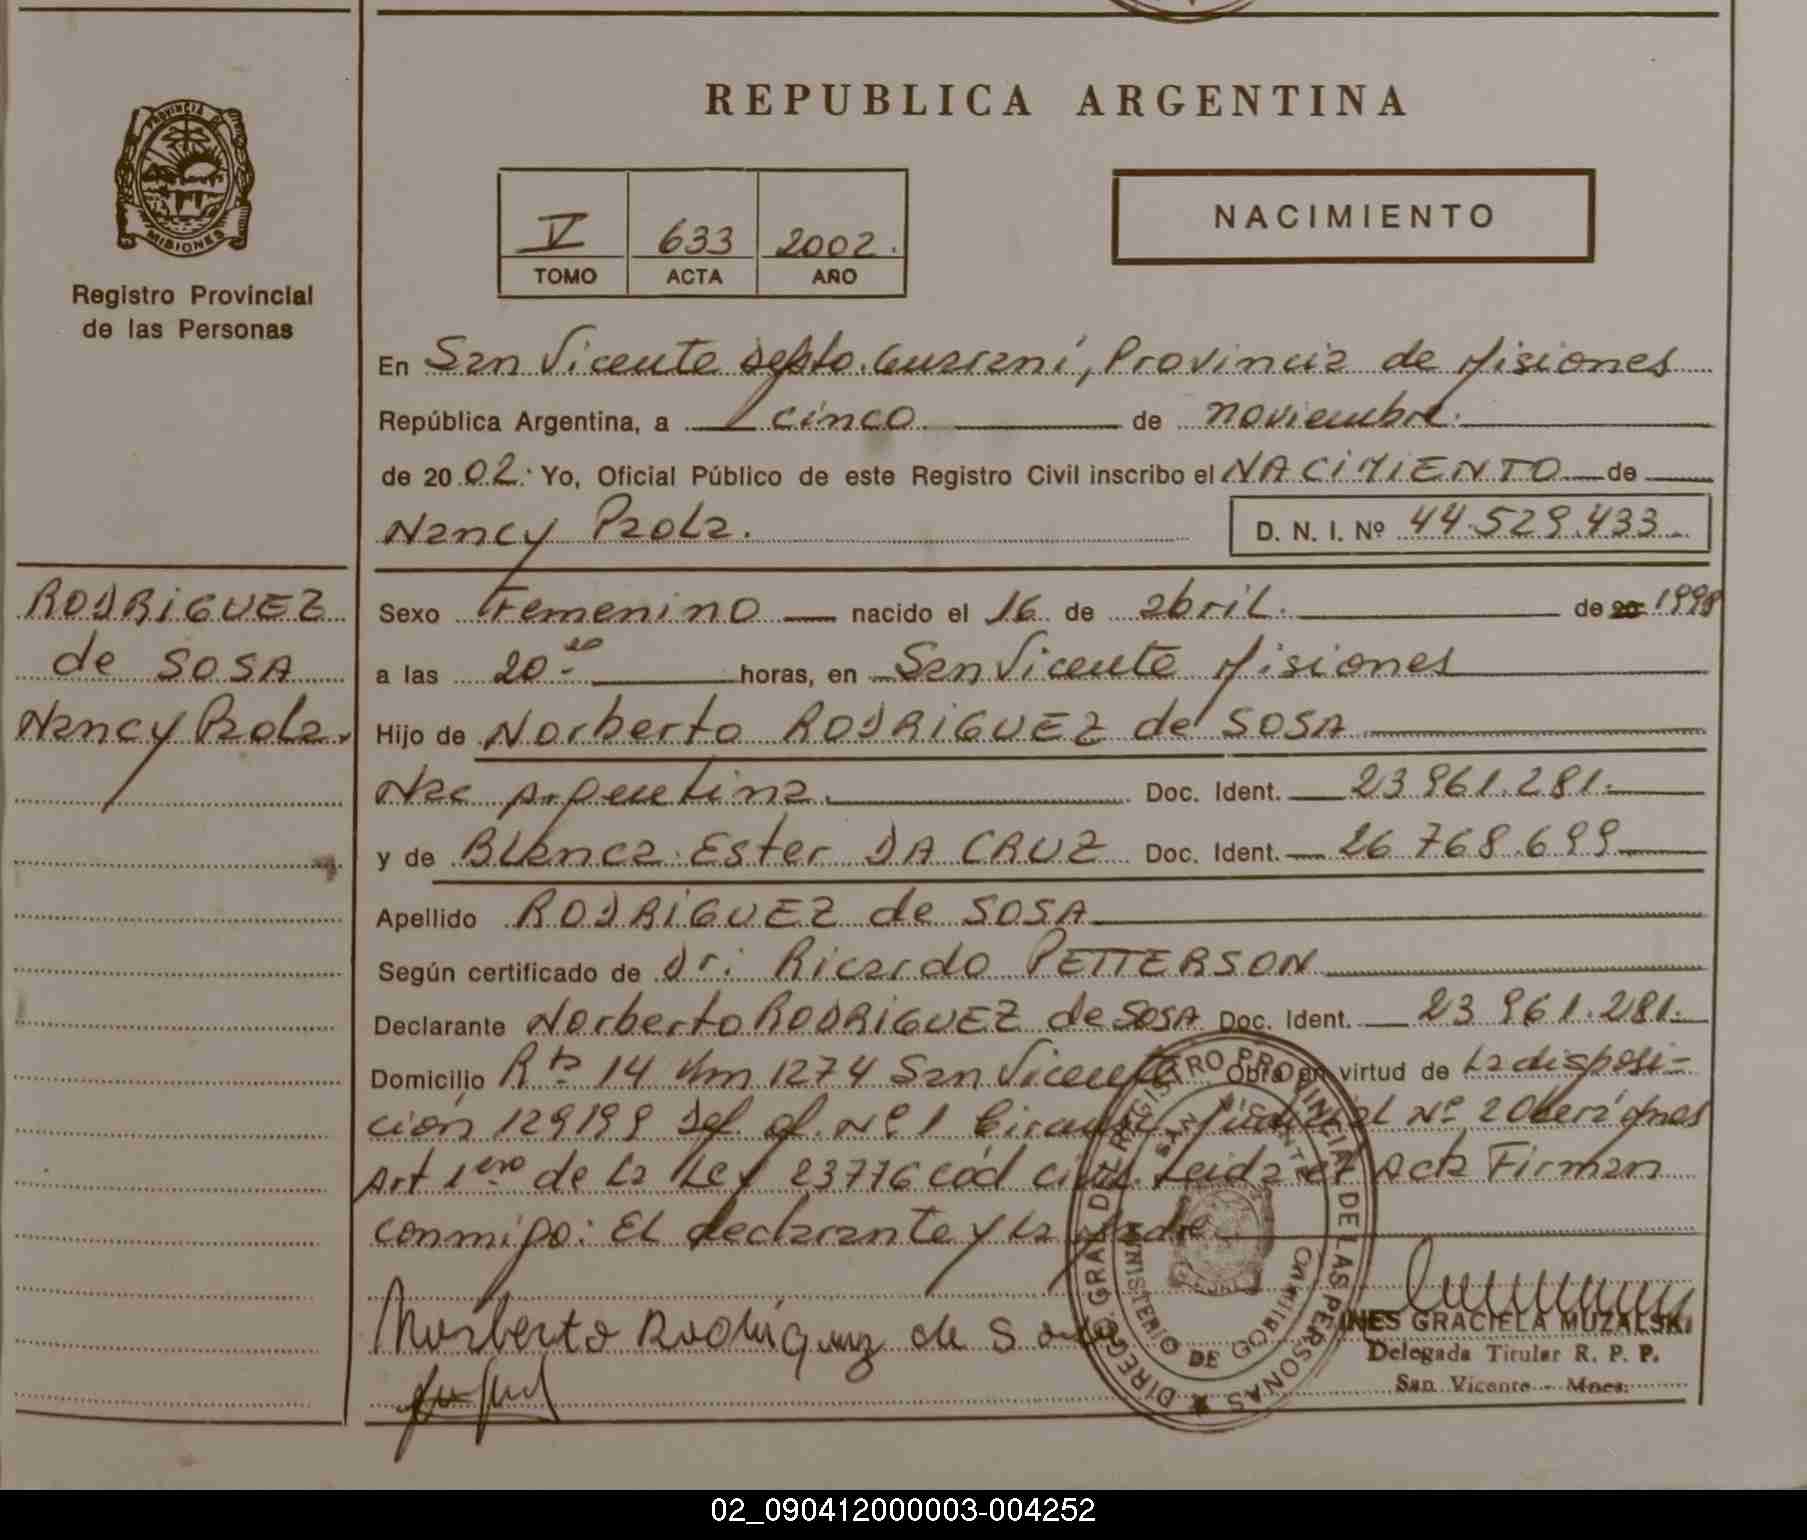 REPUBLICA ARGENTINA
PROVINCIA DE
MISIONES
Registro Provincial
de las Personas
V 633 2002.
TOMO ACTA AÑO
NACIMIENTO
En San Vicente Depto. Guaraní, Provincia de Misiones
República Argentina, a cinco de noviembre.
de 2002. Yo, Oficial Público de este Registro Civil inscribo el NACIMIENTO de
Nancy Paola. D. N. I. Nº 44.529.433
RODRIGUEZ
de SOSA
Nancy Paola.
Sexo Femenino nacido el 16 de abril. de 20 1998
a las 20.- horas, en San Vicente Misiones
Hijo de Norberto RODRIGUEZ de SOSA
Nac Argentina. Doc. Ident. 23961.281.
y de Blanca Ester DA CRUZ Doc. Ident. 26 768.699
Apellido RODRIGUEZ de SOSA
Según certificado de Dr: Ricardo PETTERSON
Declarante Norberto RODRIGUEZ de SOSA Doc. Ident. 23 961.281.
Domicilio Rta 14 Km 1274 San Vicente Obra en virtud de la disposi-
ción 129199 Def of. Nº 1 Judicial Nº 2
Art 1ero de la Ley 23776 cód civil. Leida el Acta Firman
conmigo: El declarante y la Madre
Norberto Rodriguez de Sosa
DIREC. GRAL DE REGISTRO PROVINCIAL DE LAS PERSONAS
MINISTERIO DE GOBIERNO
SAN VICENTE
INES GRACIELA MUZALSKI
Delegada Titular R. P. P.
San Vicente - Mnes.
02_090412000003-004252